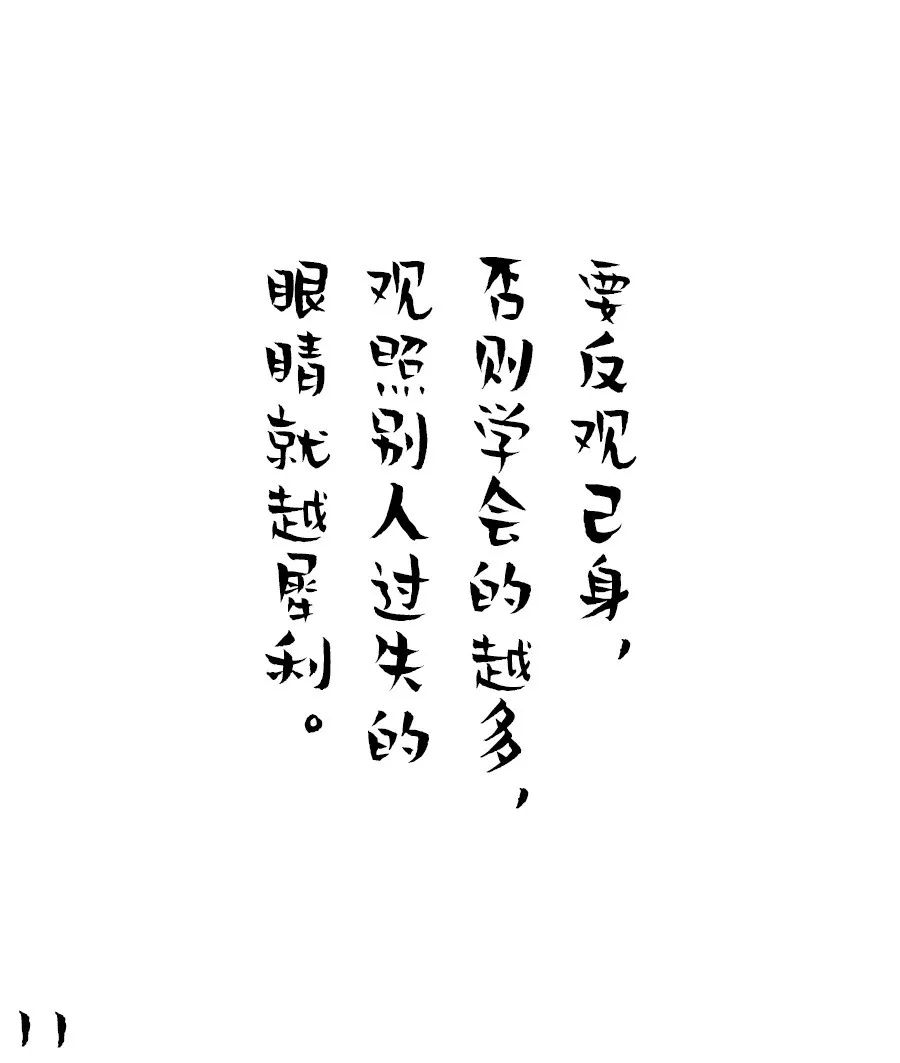 要反观己身，
否则学会的越多，
观照别人过失的
眼睛就越犀利。
11